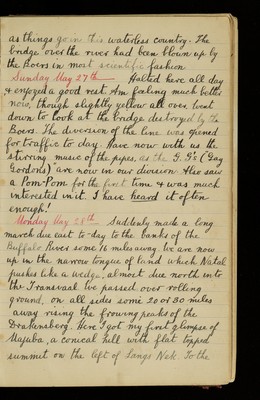 as things go in this waterless country. The
bridge over the river had been blown up by
the Boers in most scientific fashion
Sunday May 27th Halted here all day
& enjoyed a good rest. Am feeling much better
now, though slightly yellow all over. Went
down to look at the bridge destroyed by the
Boers. The diversion of the line was opened
for traffic to day. Have now with us the
stirring music of the pipes, as the G.G's (Gay
Gordons) are now in our division. Also saw
a Pom-Pom for the first time & was much
interested in it. I have heard it often
enough!
Monday May 28th Suddenly made a long
march due east to-day to the banks of the
Buffalo River some 16 miles away. We are now
up in the narrow tongue of land which Natal
pushes like a wedge, almost due north into
the Transvaal. We passed over rolling
ground, on all sides some 20 or 30 miles
away rising the frowning peaks of the
Drakensberg. Here I got my first glimpse of
Majuba, a conical hill with flat topped
summit on the left of Langs Nek. To the